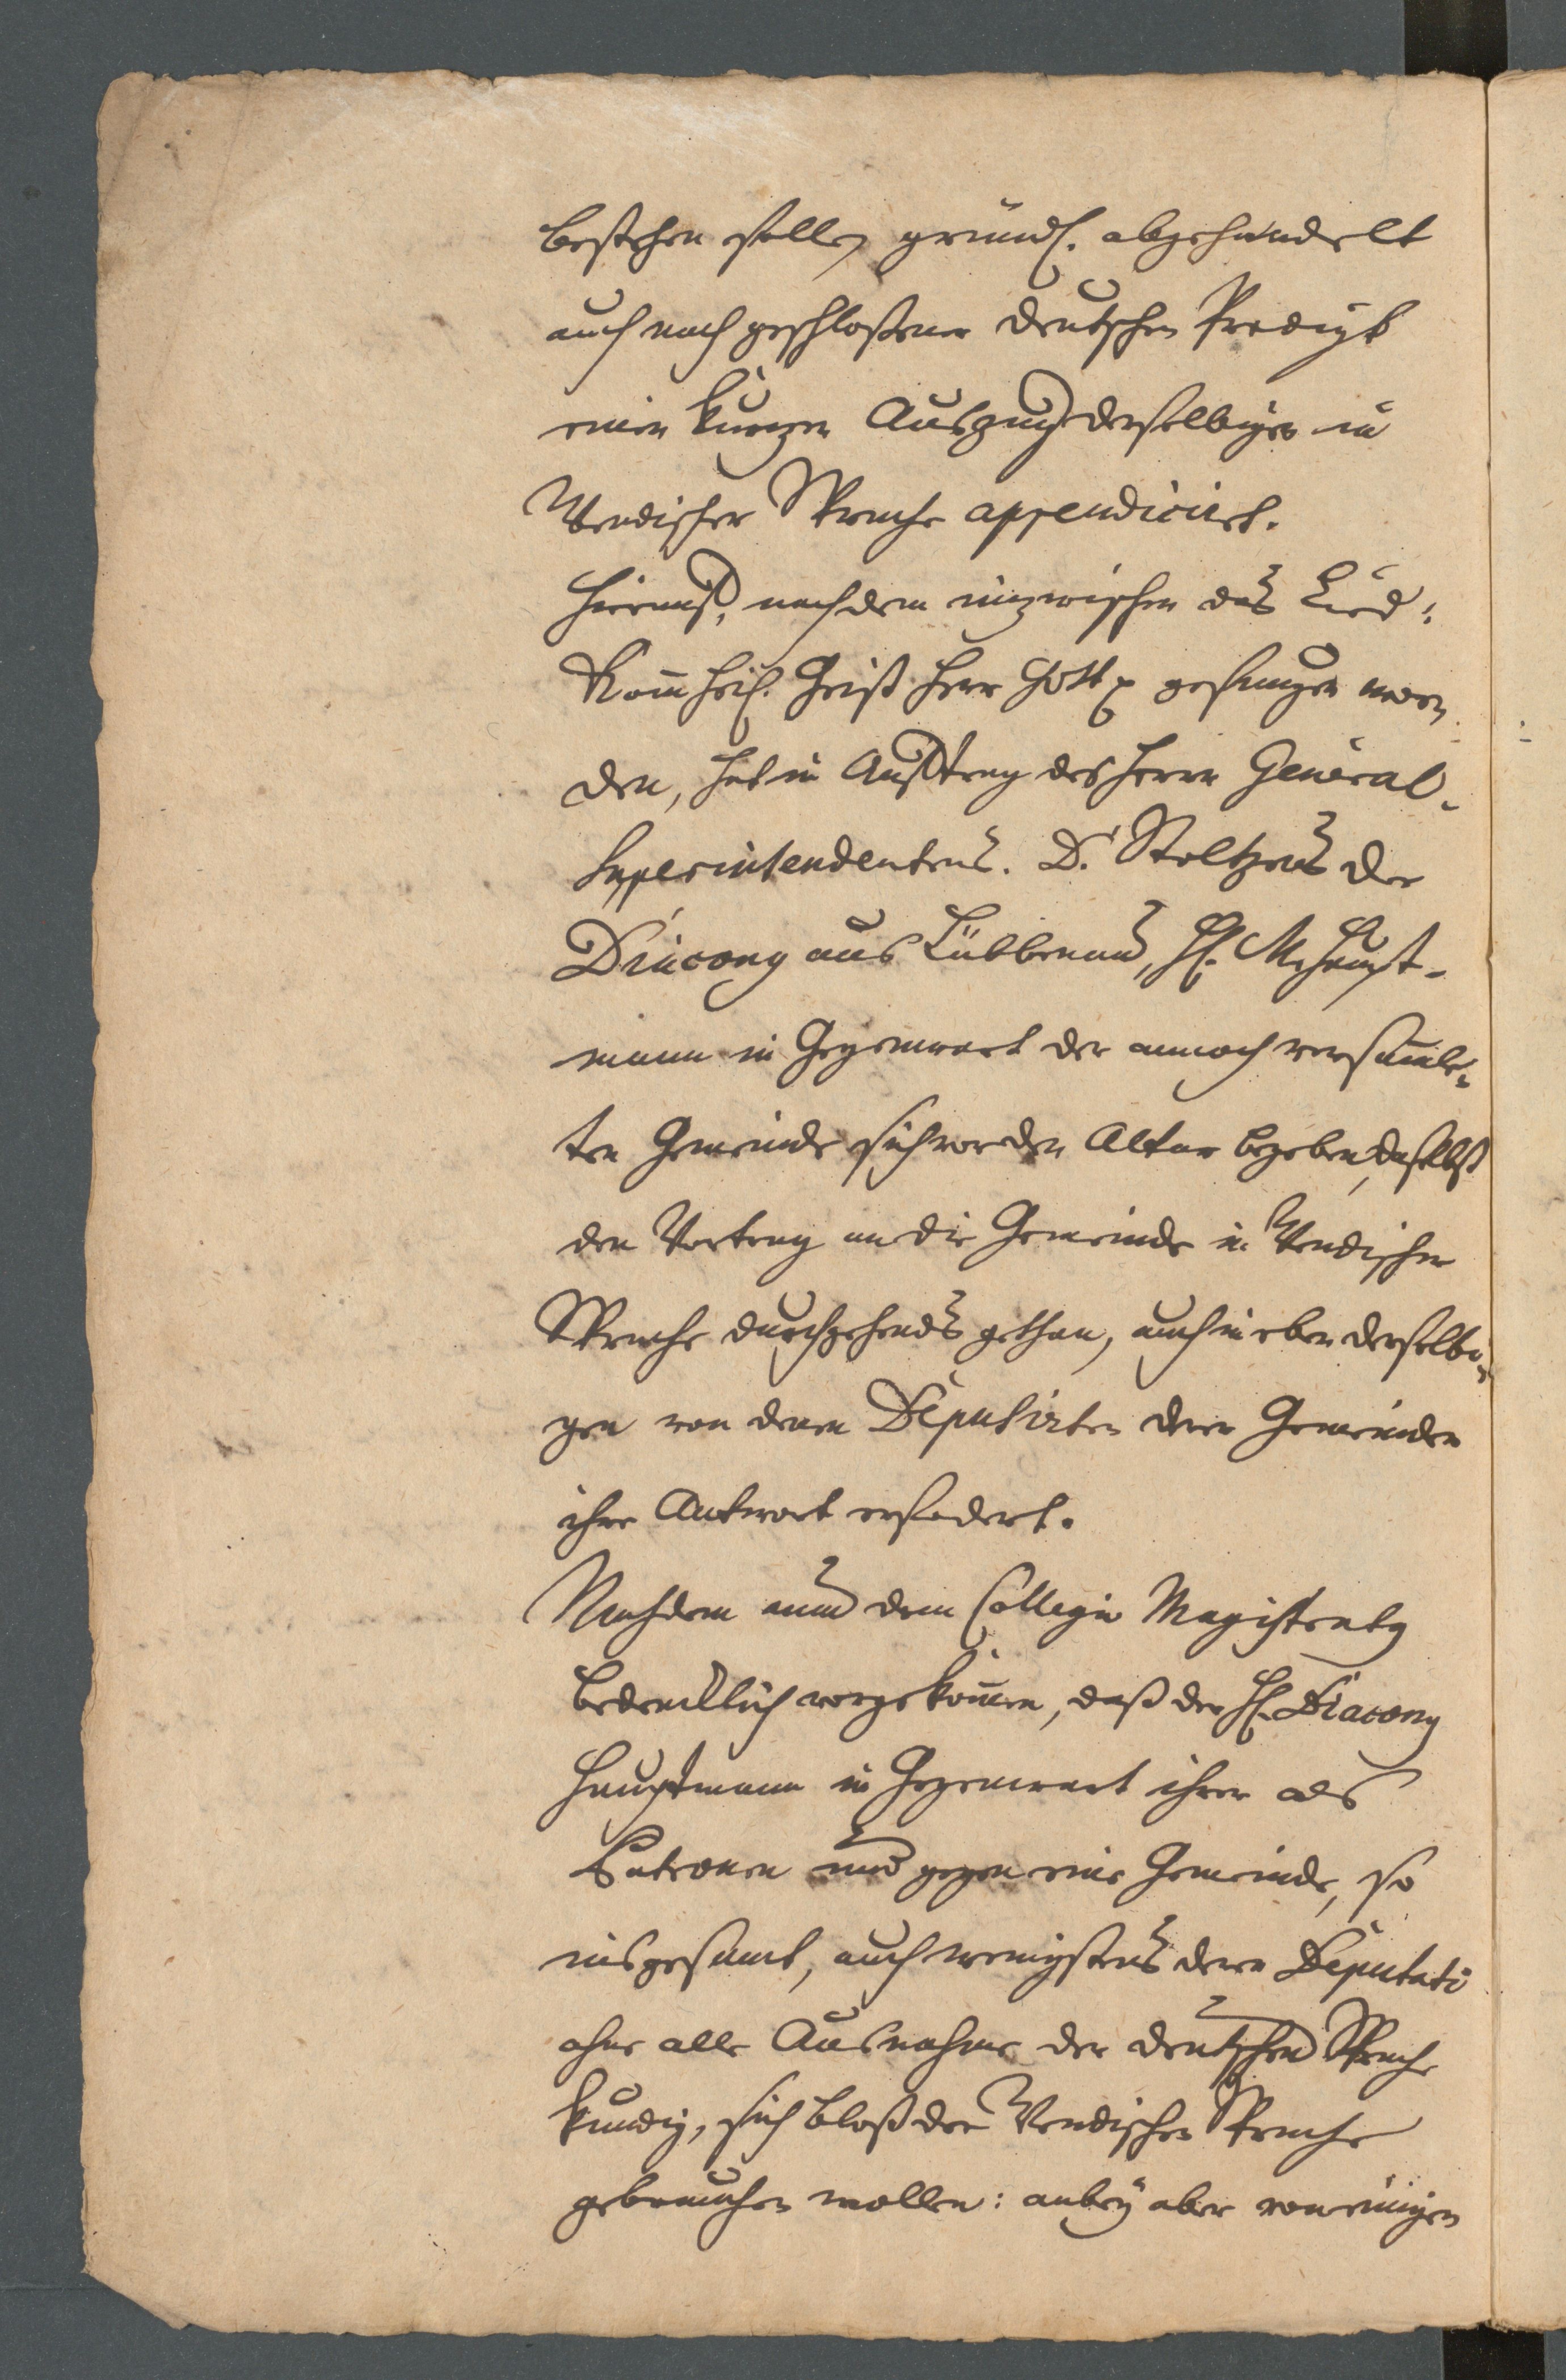 bestehen solle, gründl. abgehandelt
auch nach geschloßener deutschen Predigt
einen kurtzen Auszug derselbigen in
Wendischer Sprache appendiciret.
Hierauf, nachdem inzwischen das Lied:
Kom̄ heil. Geist Herr Gott p gesungen wor-
den, hat in Auftrag des Herrn General-
Superintendentens. D. Stoltzens der
Diacong aus Lübbenau, H. M. Haupt-
mann in Gegenwart der annoch versam̄le-
ten Gemeinde sich vor den Altar begeben, daselbst
den Vortrag an die Gemeinde in Wendischer
Sprache durchgehends gethan, auch in eben derselbi-
gen von denen Deputirten derer Gemeinden
ihre Antwort erfodert.
Nachdem nun dem Collegio Magistratg
bedencklich vorgekom̄en, daß der H. Diacong
Hauptmann in Gegenwart ihrer als
Patronen und gegen eine Gemeinde, so
insgesamt, auch wenigstens deren Deputati
ohne alle Ausnahme der deutschen Sprache
kundig, sich bloß der Wendischen Sprache
gebrauchen wollen: anbey aber von einigen